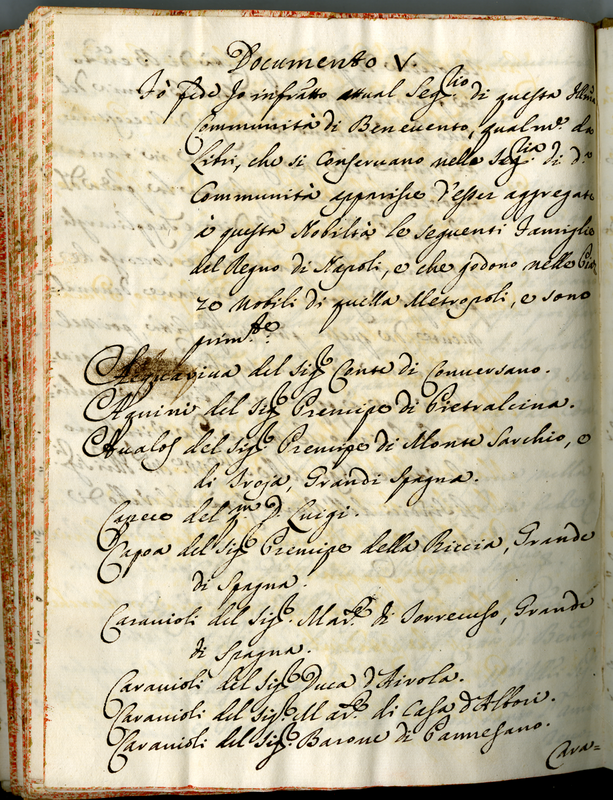 Documento V.
Io fede Io infratto attual Seg.rio di questa Ill.ma
Communità di Benevento, qual.m.e da
Libri, che si conservano nella Seg.ria di d.a
Communità apparisce d'esser aggregate
à questa Nobiltà le seguenti Famiglie
del Regno di Napoli, e che godono nelle Piaz
ze Nobili di quella Metropoli, e sono
prim.te
Acquaviva del Sig.r Conte di Conversano.
Aquini del Sig.r Prencipe di Pietralcina.
Avalos del Sig.r Prencipe di Monte Sarchio, e
di Troja, Grandi Spagna.
Capece del q.m D. Luigi.
Capoa del Sig.r Prencipe della Riccia, Grande
di Spagna.
Caravioli del Sig.r Mar.se di Torrecuso, Grande
di Spagna.
Caravioli del Sig.r Duca d'Airola.
Caravioli del Sig.r Mar.se di Casa d'Albori.
Caravioli del Sig.r Barone di Pannesano.
Cara=